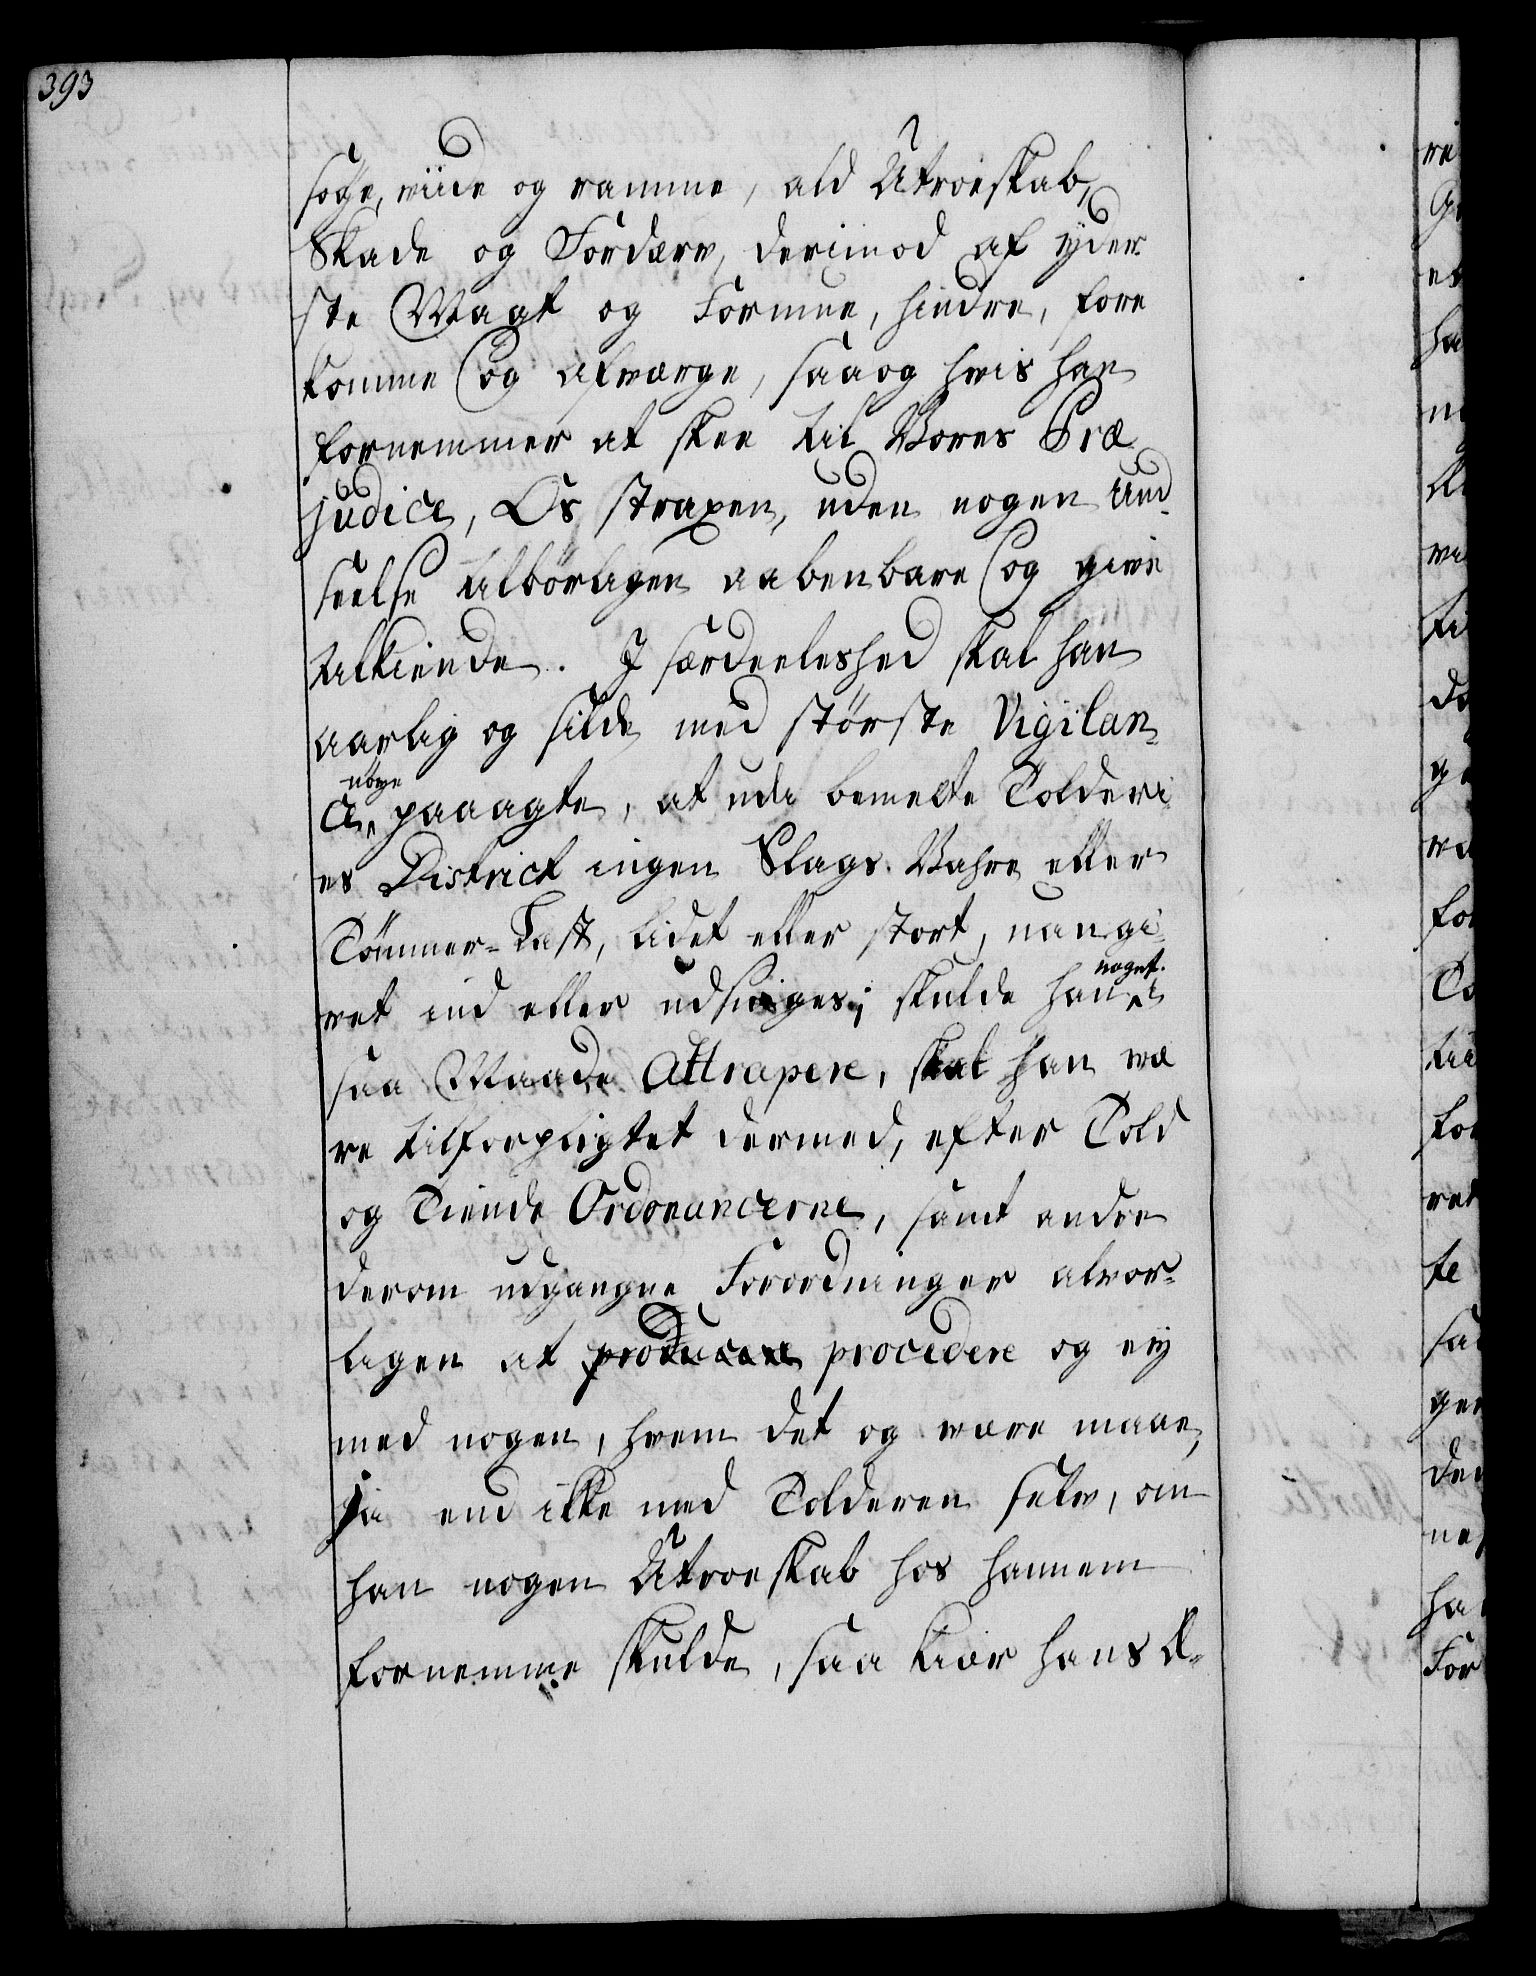 393
søge, viide og ramme, ald Utroeskab,
Skade og Fordærv, derimod af yder
ste Magt og Formue, hindre, fore
komme og afværge, saa og hvis han
fornemmer at skee til Vores Præ
judice, Os straxen, uden nogen Und-
seelse tilbørligen aabenbare og give
tilkiende. I særdeeleshed skal han
aarlig og silde med største Vigilan-
nøye
ce, paaagte, at udi bemelte Tolderi
es District ingen Slags Vahre eller
Tømmer-Last, lidet eller stort, uangi
vet ind eller udsniges; skulde han i
noget
saa Maade Attrapere, skal han væ
re tilforpligtet dermed, efter Told
og Tiende Ordonancerne, samt andre
derom udgangne Forordninger alvor-
ligen at producere procedere og ey
med nogen, hvem det og være maae,
ja end ikke med Tolderen selv, om
han nogen Utroeskab hos hannem
fornemme skulde, saa kiær hans Æ-
re
ha
ne
for
ret
te
den
ha
For